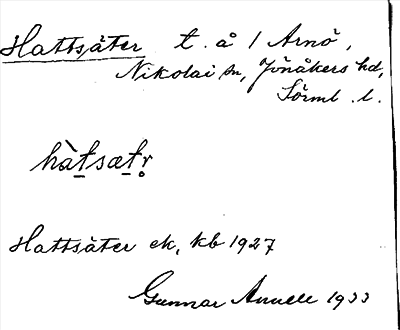 Hattsäter t. å / Arnö,
Nikolai sn, Jönåkers hd,
Sörml. l.
hàtsætr̥
Hattsäter ek, kb 1927
Gunnar Annell 1933